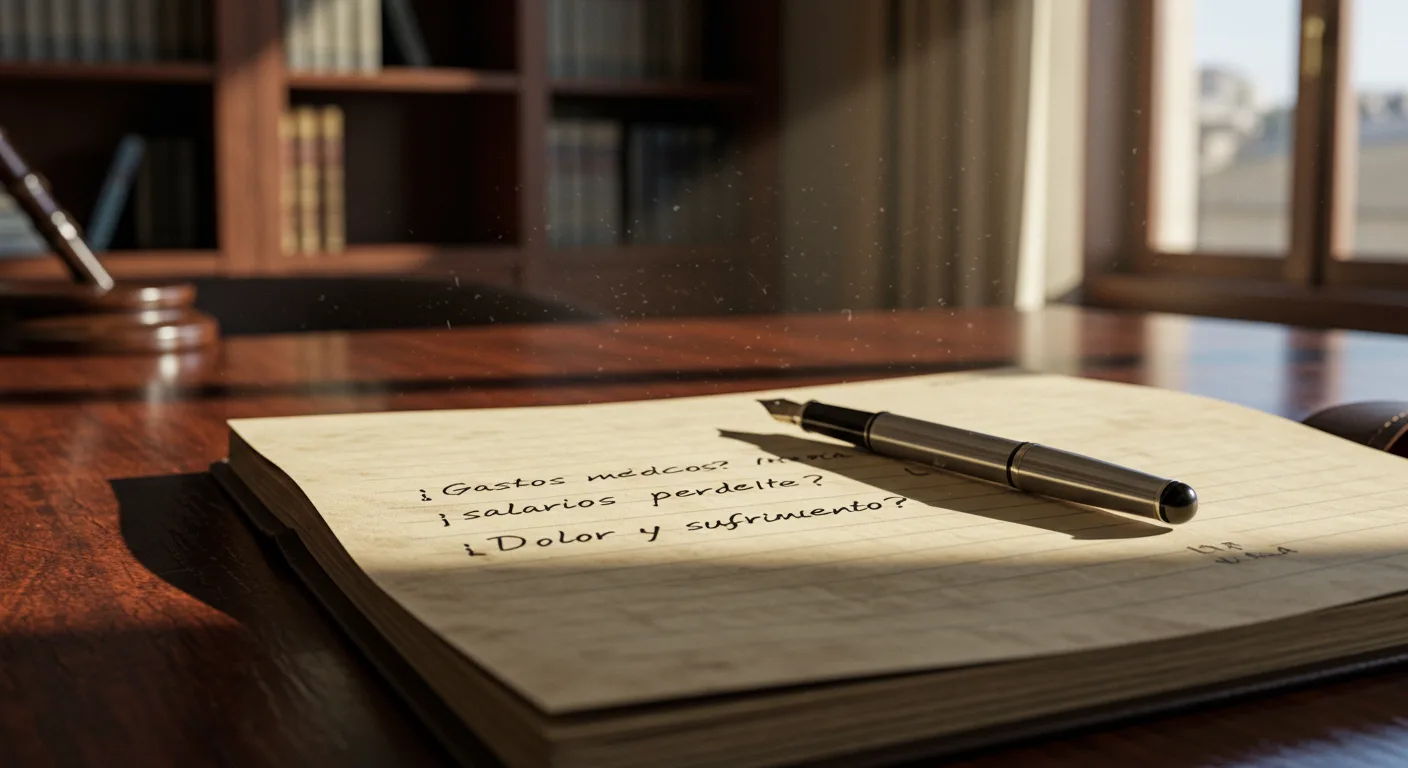 ¡Gastos médcos?
¡salarios perdelte?
¡Dolor y sufrimiento?